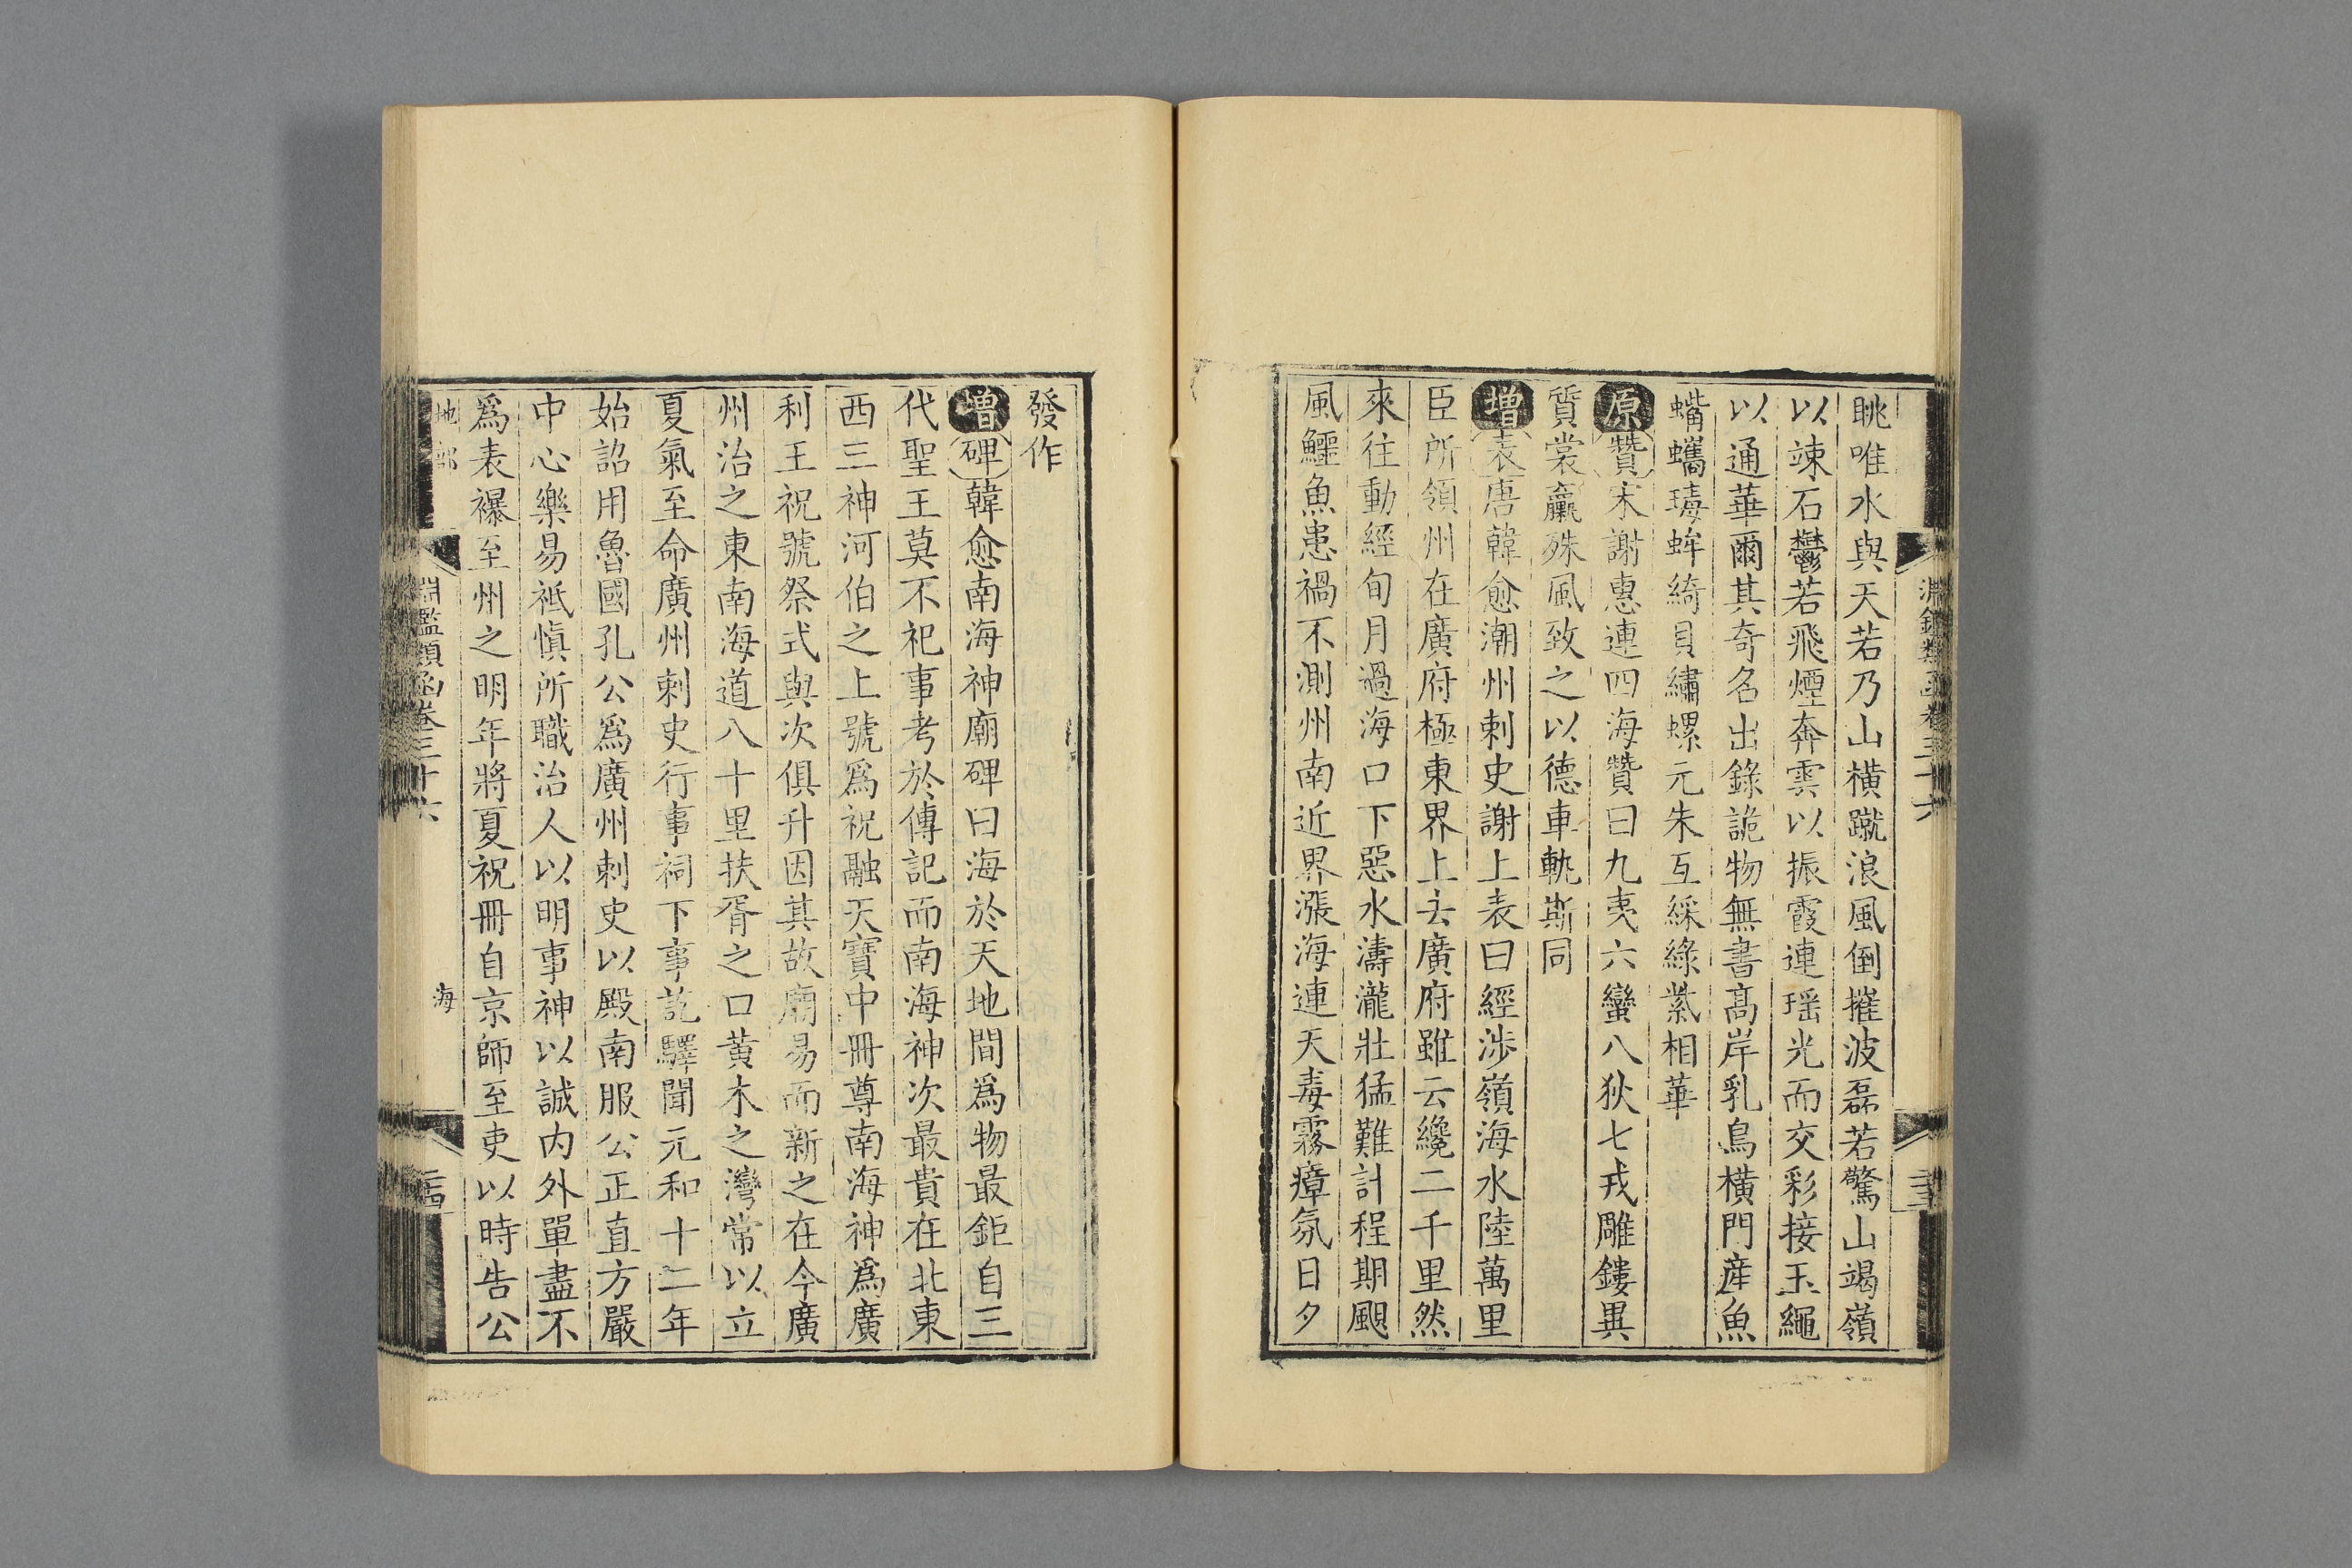 眺唯水與天若乃山橫蹴浪風倒摧波磊若驚山竭嶺
以竦石鬱若飛煙奔雲以振霞連瑶光而交彩接玉繩
以通華爾其奇名出錄詭物無書高岸乳鳥橫門產魚
蠵㻛蚌綺貝繡螺元朱互綵綠紫相華
原贊宋謝惠連四海贊曰九夷六蠻八狄七戎雕鏤異
質裳羸殊風致之以德車軌斯同
增表唐韓愈潮州刺史謝上表曰經涉嶺海水陸萬里
臣所領州在廣府極東界上去廣府雖云纔二千里然
來往動經旬月過海口下惡水濤瀧壯猛難計程期颶
風鱷魚患禍不測州南近界漲海連天毒霧瘴氛日夕
發作
增碑韓愈南海神廟碑曰海於天地間爲物最鉅自三
代聖王莫不祀事考於傳記而南海神次最貴在北東
西三神河伯之上號爲祝融天寶中冊尊南海神爲廣
利王祝號祭式與次俱升因其故廟易而新之在今廣
州治之東南海道八十里扶胥之口黃木之灣常以立
夏氣至命廣州刺史行事祠下事訖驛聞元和十二年
始詔用魯國孔公爲廣州刺史以殿南服公正直方嚴
中心樂易祗慎所職治人以明事神以誠內外單盡不
爲表襮至州之明年將夏祝冊自京師至吏以時告公
地部 淵鑑類函卷三十六 海